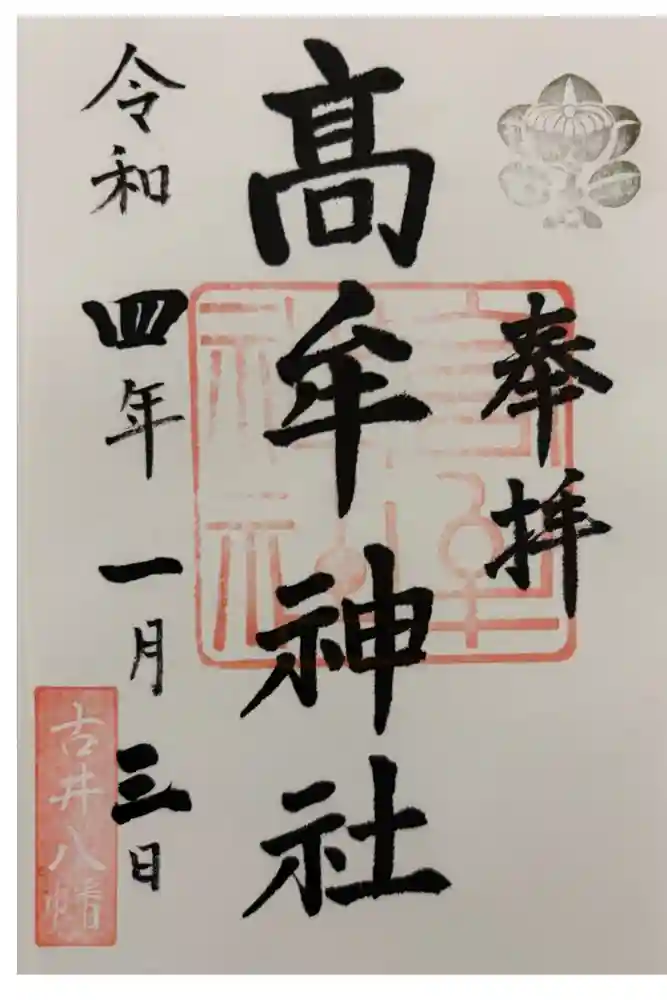 奉拝
髙牟神社
令和四年一月三日
古井八幡